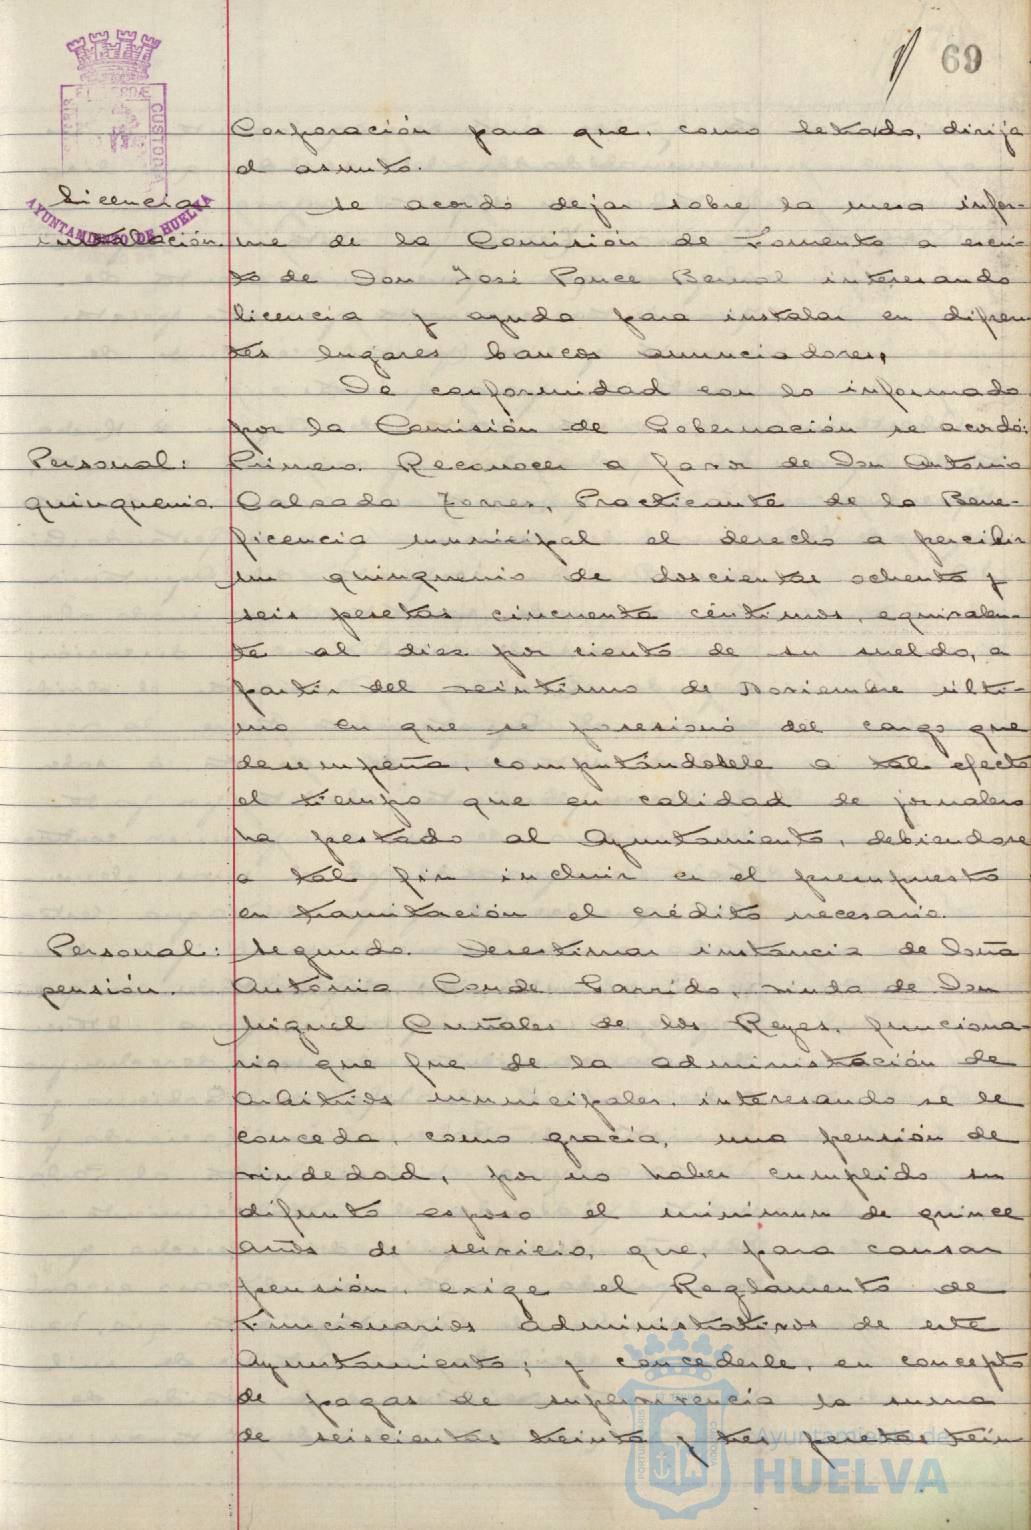 69
Corporación para que, como letrado, dirija
el asunto.
Licencia
AYUNTAMIENTO DE HUELVA
CUSTODIA
instalación.
Se acordó dejar sobre la mesa infor-
me de la Comisión de Fomento a escri-
to de Don José Ponce Bernal interesando
licencia y ayuda para instalar en diferen
tes lugares bancos anunciadores,
De conformidad con lo informado
por la Comisión de Gobernación se acordó:
Personal:
quinquenio.
Primero. Reconocer a favor de Don Antonio
Calzada Torres, Practicante de la Bene-
ficencia municipal el derecho a percibir
un quinquenio de doscientas ochenta y
seis pesetas cincuenta céntimos, equivalen-
te al diez por ciento de su sueldo, a
partir del veintiuno de Noviembre últi-
mo en que se posesionó del cargo que
desempeña, computándosele a tal efecto
el tiempo que en calidad de jornalero
ha pestado al Ayuntamiento, debiendose
a tal fin incluir en el presupuesto
en tramitación el crédito necesario.
Personal:
pensión.
Segundo. Desestimar instancia de Doña
Antonia Conde Garrido, viuda de Don
Miguel Cuñales de los Reyes, funciona-
rio que fue de la administración de
Arbitrios municipales, interesando se le
conceda, como gracia, una pensión de
viudedad, por no haber cumplido su
difunto esposo el minimun de quince
años de servicio, que, para causar
pensión, exige el Reglamento de
Funcionarios administrativos de este
Ayuntamiento; y concederle, en concepto
de pagas de supervivencia la suma
de seiscientas treinta y tres pesetas trein
Ayuntamiento de
HUELVA